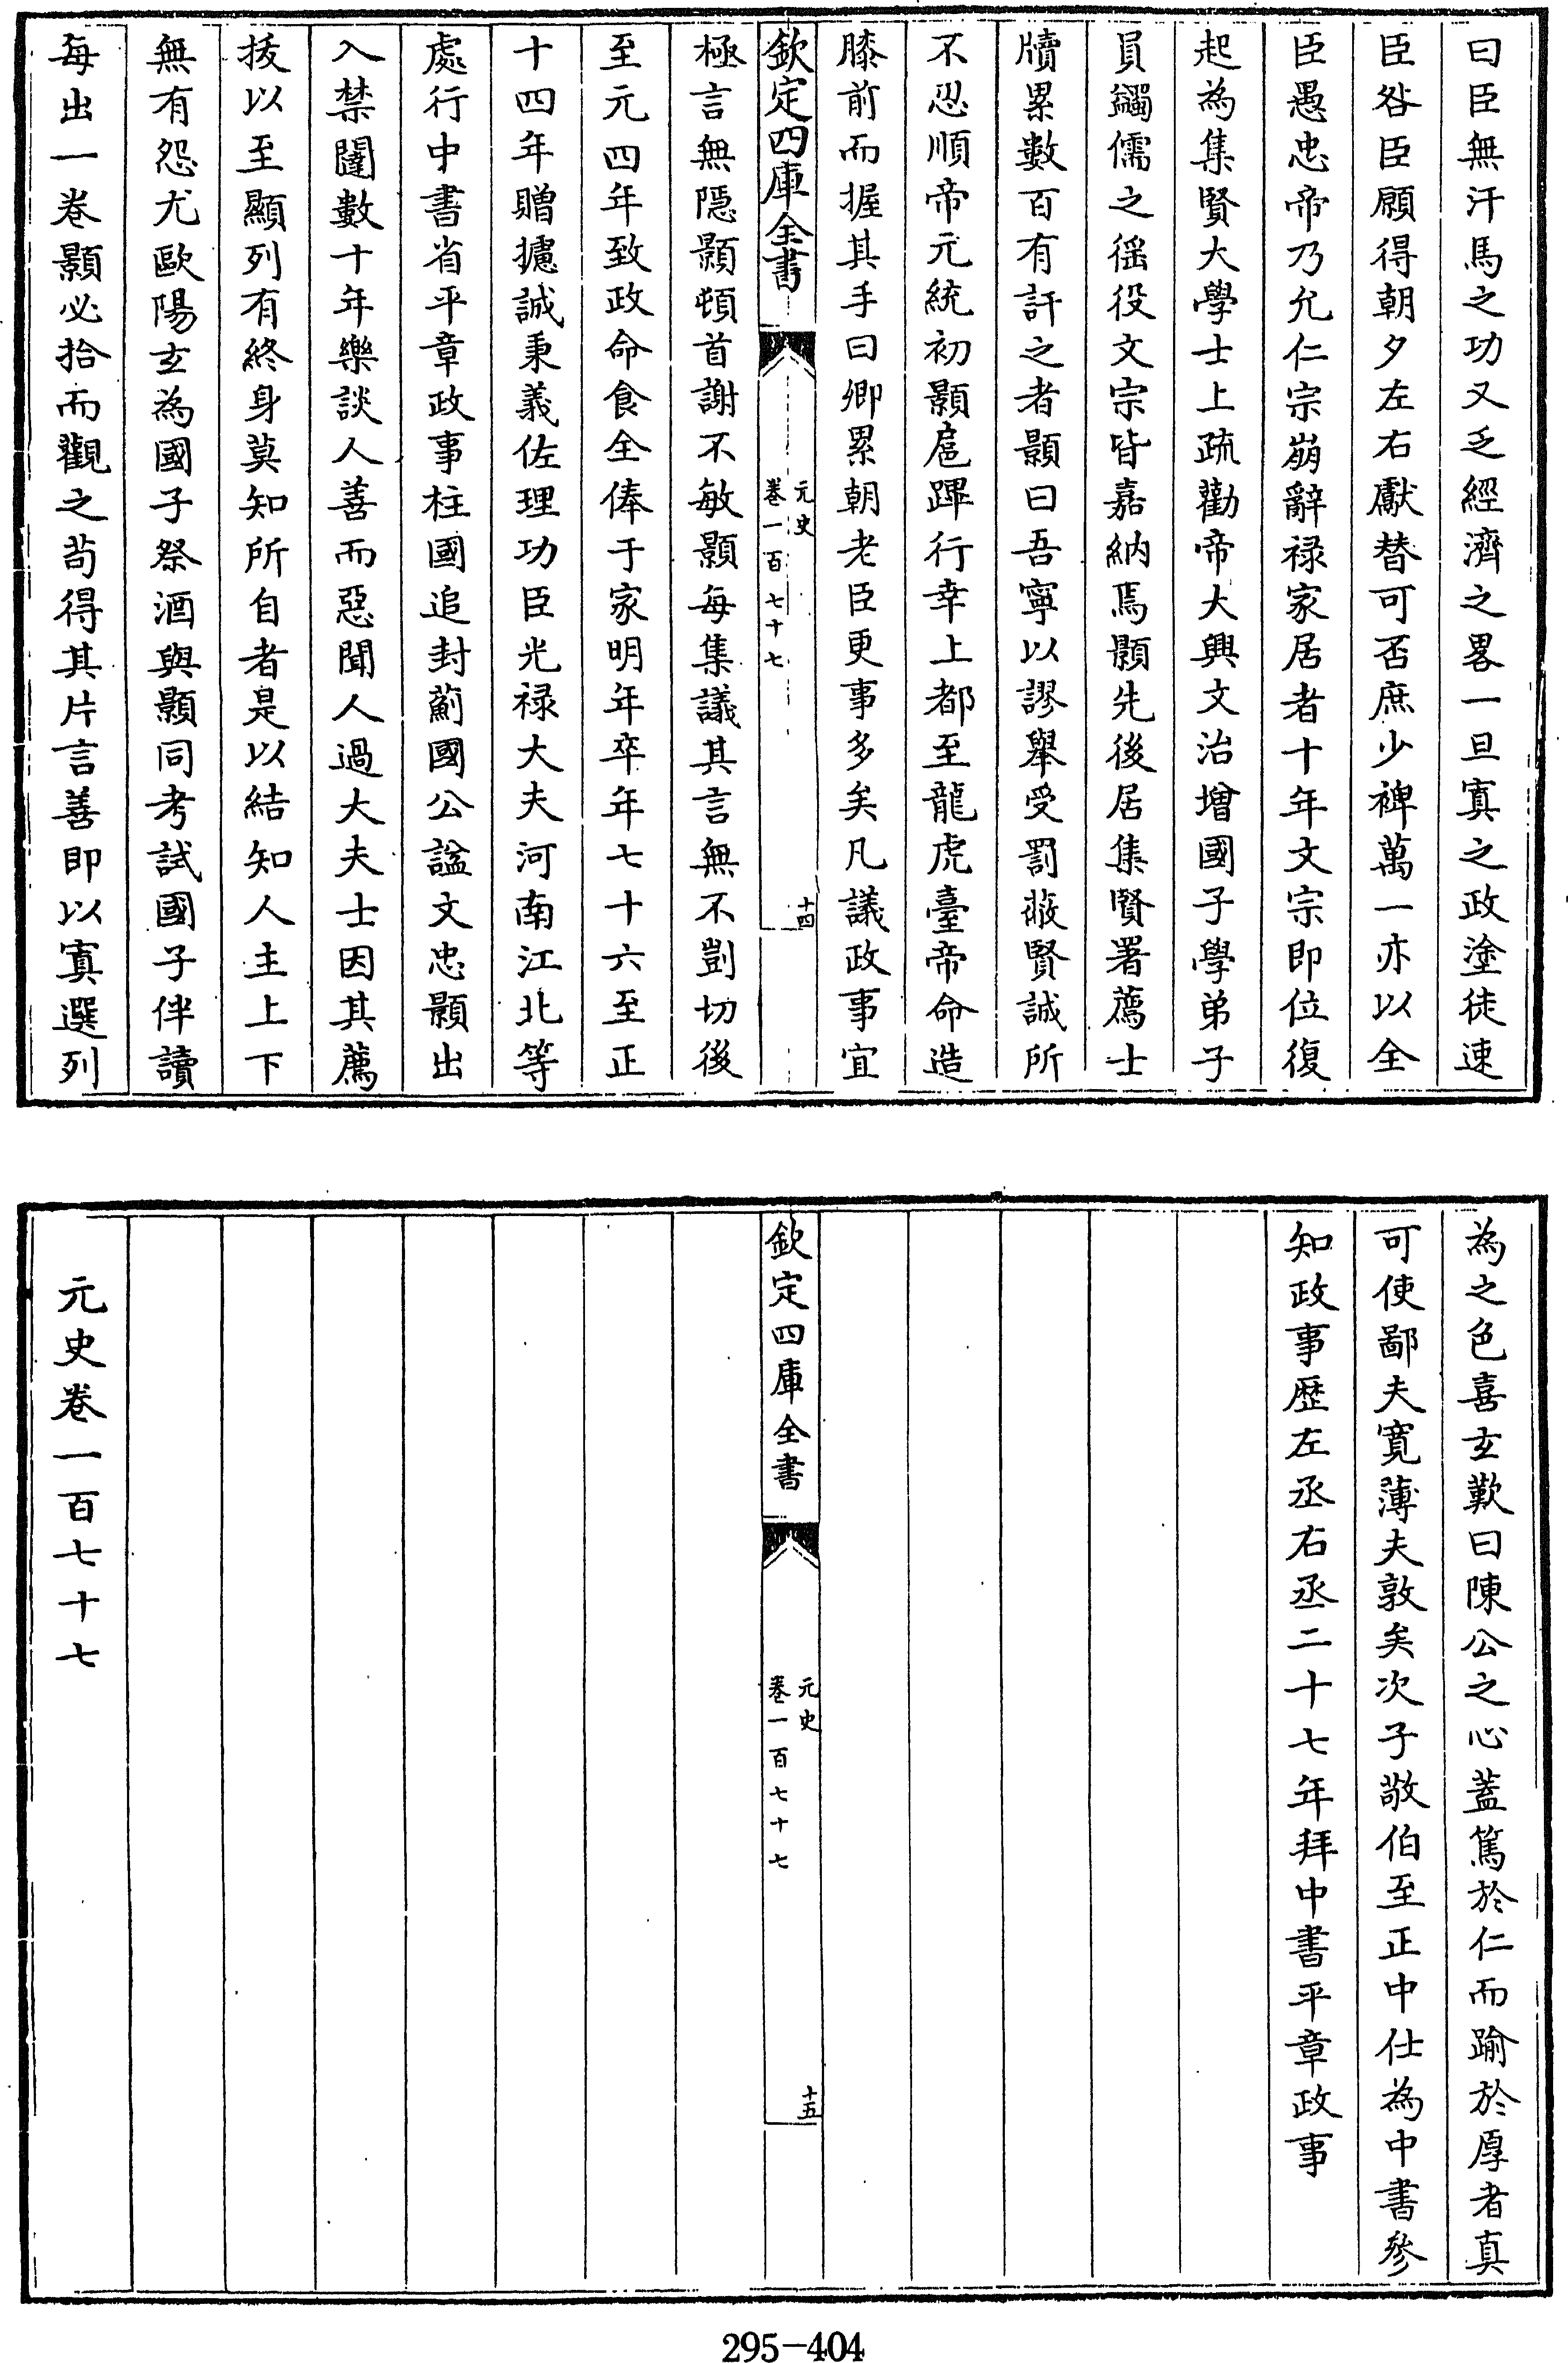 曰臣無汗馬之功又乏經濟之畧一旦寘之政塗徒速
臣咎臣願得朝夕左右獻替可否庶少裨萬一亦以全
臣愚忠帝乃允仁宗崩辭禄家居者十年文宗即位復
起為集賢大學士上疏勸帝大興文治增國子學弟子
員蠲儒之徭役文宗皆嘉納焉顥先後居集賢署薦士
牘累數百有訐之者顥曰吾寧以謬舉受罰蔽賢誠所
不忍順帝元統初顥扈蹕行幸上都至龍虎臺帝命造
膝前而握其手曰卿累朝老臣更事多矣凡議政事宜
欽定四庫全書
元史
卷一百七十七
十四
極言無隱顥頓首謝不敏顥每集議其言無不剴切後
至元四年致政命食全俸于家明年卒年七十六至正
十四年贈攄誠秉義佐理功臣光禄大夫河南江北等
處行中書省平章政事柱國追封薊國公諡文忠顥出
入禁闥數十年樂談人善而惡聞人過大夫士因其薦
拔以至顯列有終身莫知所自者是以結知人主上下
無有怨尤歐陽玄為國子祭酒與顥同考試國子伴讀
每出一卷顥必拾而觀之苟得其片言善即以寘選列
為之色喜玄歎曰陳公之心蓋篤於仁而踰於厚者真
可使鄙夫寛薄夫敦矣次子敬伯至正中仕為中書參
知政事歴左丞右丞二十七年拜中書平章政事
欽定四庫全書
元史
卷一百七十七
十五
元史卷一百七十七
295-404